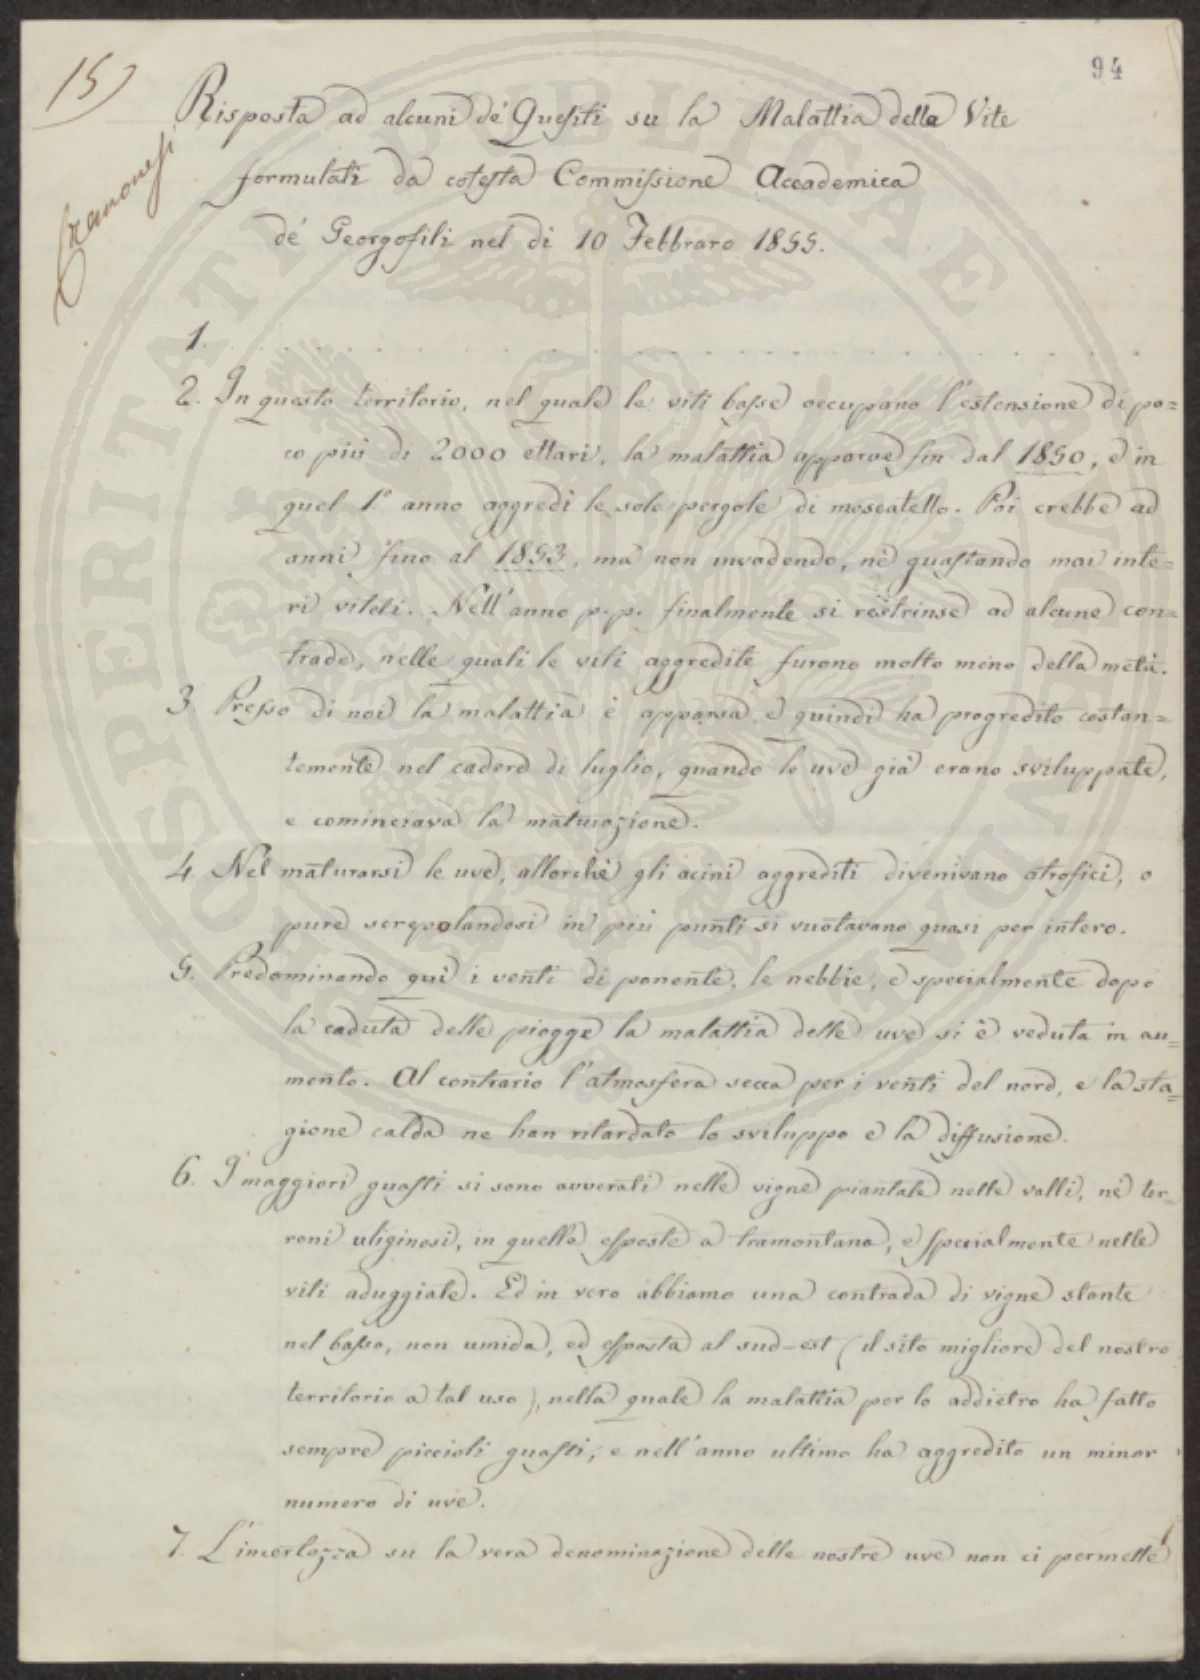 94
15)
Risposta ad alcuni de' Quesiti su la Malattia della Vite
formulati da cotesta Commissione Accademica
de' Georgofili nel dì 10 Febbraro 1855.
1. . . . . . . . . . . . . . . . . . . . . . . . . . . . . . .
2. In questo territorio, nel quale le viti basse occupano l'estensione di po=
co più di 2000 ettari, la malattia apparve fin dal 1850, e in
quel 1° anno aggredì le sole pergole di moscatello. Poi crebbe ad
anni fino al 1853, ma non invadendo, nè guastando mai inte=
ri vitoli. Nell'anno p.p. finalmente si restrinse ad alcune con=
trade, nelle quali le viti aggredite furono molto meno della metà.
3. Presso di noi la malattia è apparsa, e quindi ha progredito costan=
temente nel cadere di luglio, quando le uve già erano sviluppate,
e cominciava la maturazione.
4. Nel maturarsi le uve, allorchè gli acini aggrediti divenivano atrofici, o
pure screpolandosi in più punti si vuotavano quasi per intero.
5. Predominando quì i venti di ponente, le nebbie, e specialmente dopo
la caduta delle piogge la malattia delle uve si è veduta in au=
mento. Al contrario l'atmosfera secca per i venti del nord, e la sta=
gione calda ne han ritardato lo sviluppo e la diffusione.
6. I maggiori guasti si sono avverati nelle vigne piantate nelle valli, ne' ter=
reni uliginosi, in quelle esposte a tramontana, e specialmente nelle
viti aduggiate. Ed in vero abbiamo una contrada di vigne stante
nel basso, non umida, ed esposta al sud-est (il sito migliore del nostro
territorio a tal uso), nella quale la malattia per lo addietro ha fatto
sempre piccioli guasti; e nell'anno ultimo ha aggredito un minor
numero di uve.
7. L'incertezza su la vera denominazione delle nostre uve non ci permette
PROSPERITATI PUBLICAE AUGENDAE